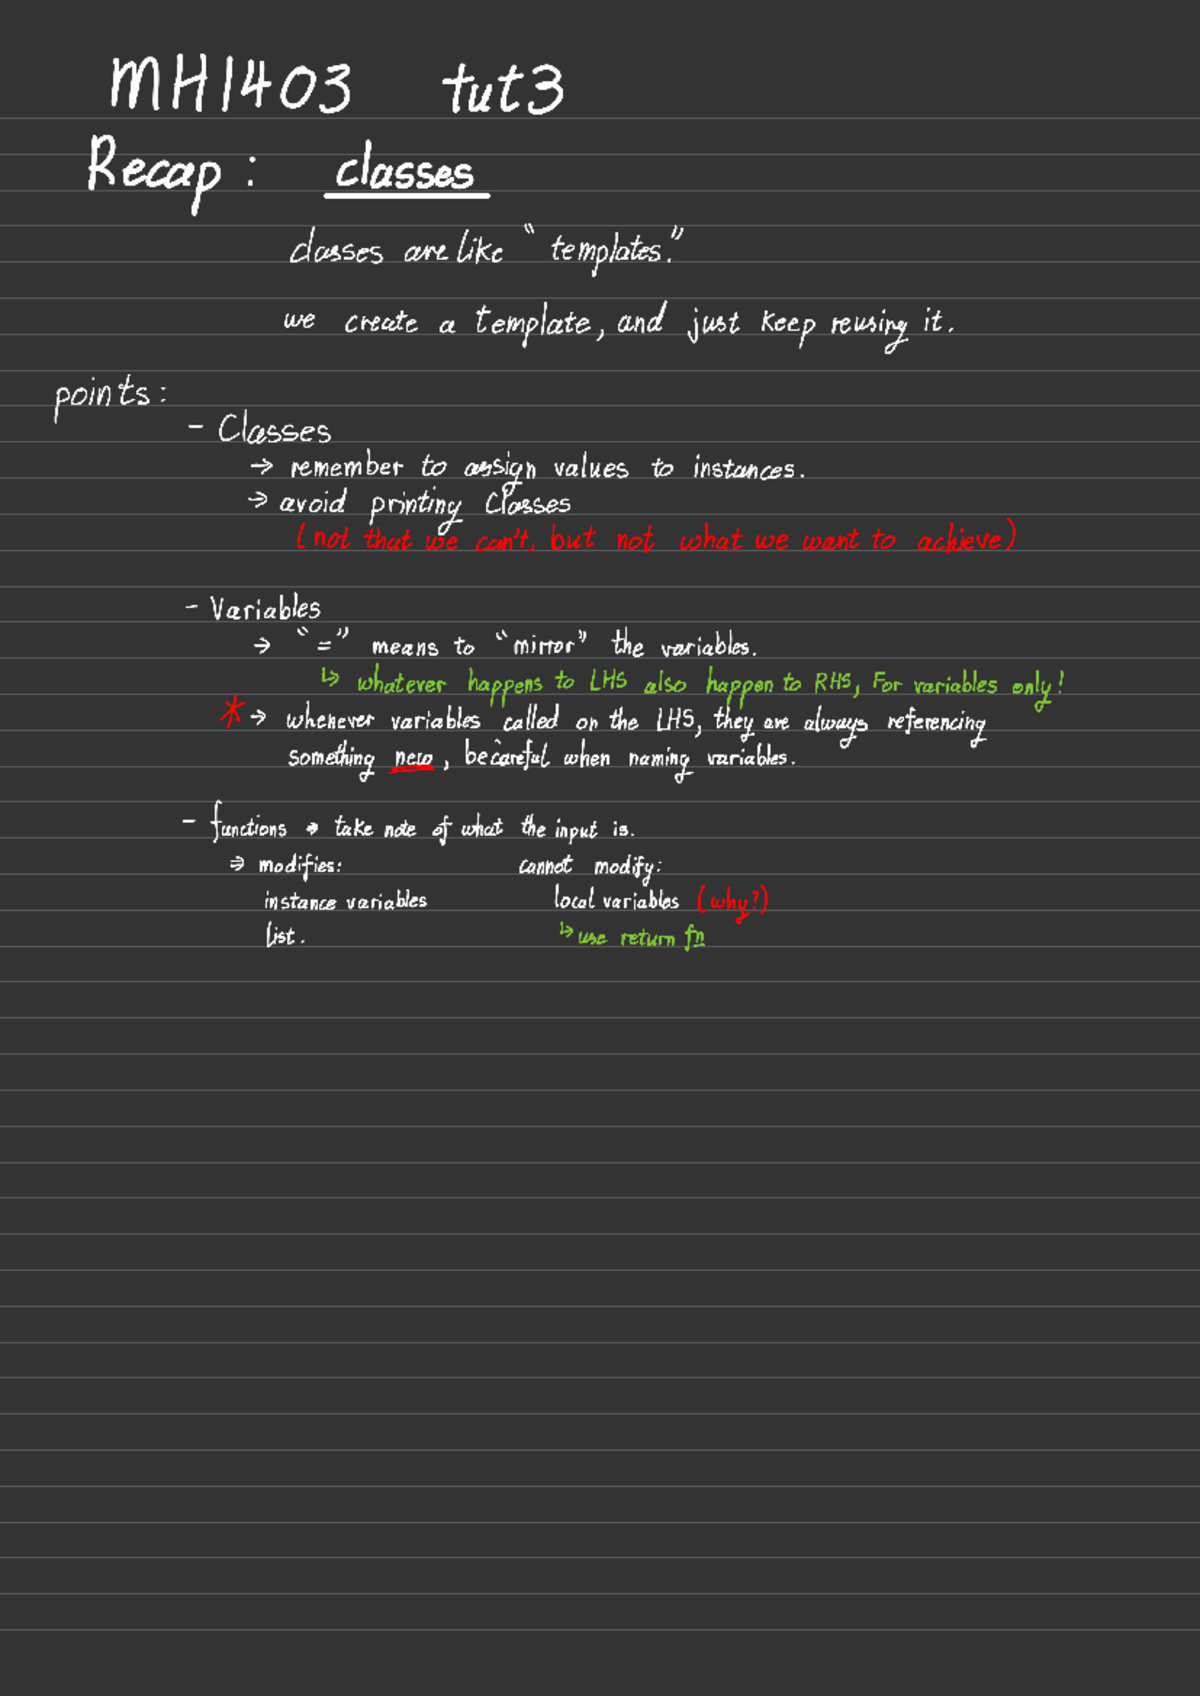 MH1403 tut3
Recap : classes
classes are like "templates."
we create a template, and just keep reusing it.
points:
- Classes
→ remember to assign values to instances.
→ avoid printing Classes
(not that we can't, but not what we want to achieve)
- Variables
→ "=" means to "mirror" the variables.
↳ whatever happens to LHS also happen to RHS, For variables only!
* → whenever variables called on the LHS, they are always referencing
something new, be careful when naming variables.
- functions → take note of what the input is.
⇒ modifies: cannot modify:
instance variables local variables (why?)
list. ↳ use return fn